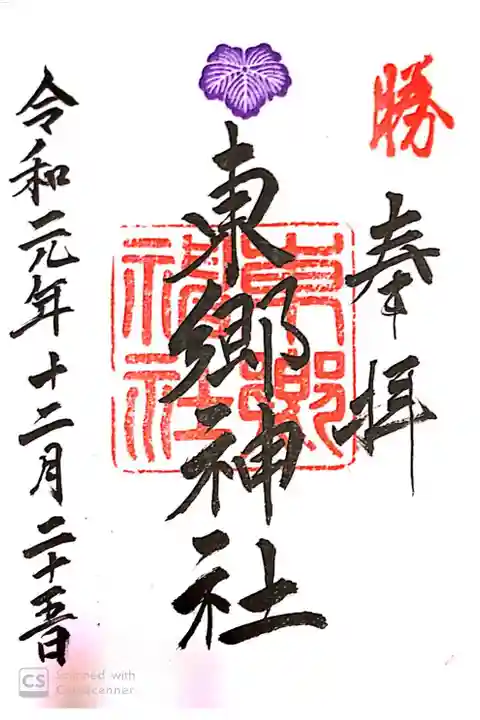 勝
奉拝
東郷神社
東郷神社
令和元年十二月二十五日
CS Scanned with
CamScanner